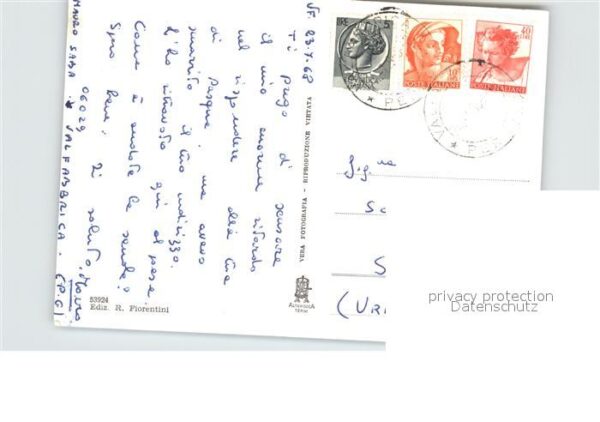 VF. 23.7.68
Ti prego di scusare
il mio enorme ritardo
nel rispondere alla tua
di Pasqua, ma avevo
smarrito il tuo indirizzo.
L'ho ritrovato qui al paese.
Come è andata la scuola?
Spero bene. Ti saluto. Mauro
MAURO SABA 06029 VALFABBRICA (PG)
VERA FOTOGRAFIA - RIPRODUZIONE VIETATA
53924
Ediz. R. Fiorentini
TERNI
10
POSTE ITALIANE
40
LIRE
POSTE ITALIANE
Sig.na
S
(UR
privacy protection
Datenschutz